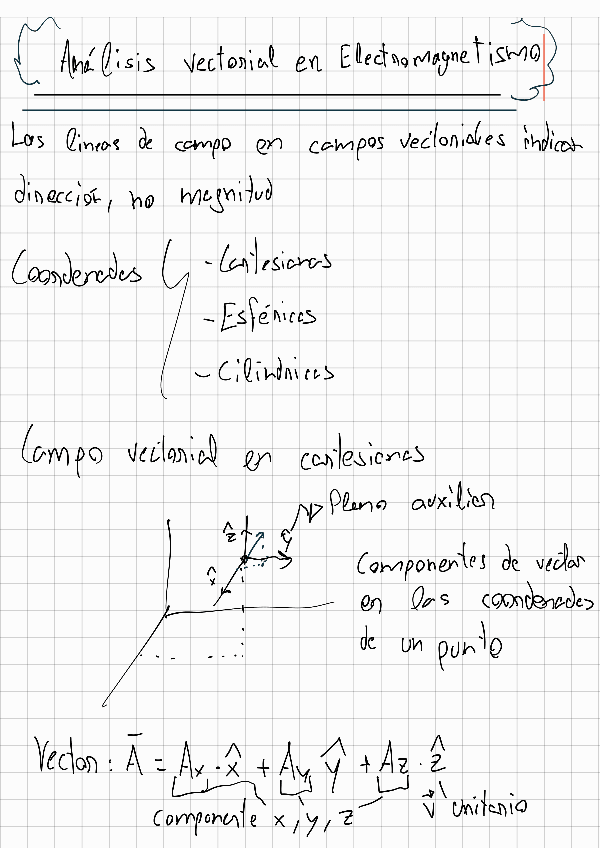 Análisis vectorial en Electromagnetismo
Las lineas de campo en campos vectoriales indican
dirección, no magnitud
Coordenadas
- Cartesianas
- Esféricas
- Cilíndricas
Campo vectorial en cartesianas
Plano auxiliar
ẑ
ŷ
x̂
Componentes de vector
en las coordenadas
de un punto
Vector: A̅ = Ax · x̂ + Ay ŷ + Az · ẑ
componente x, y, z
v⃗ unitario